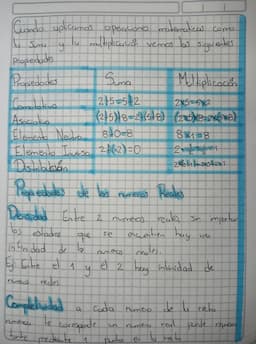 Cuando aplicamos operaciones matematicas como
la suma y la multiplicación vemos las siguientes
Propiedades
Propiedades Suma Multiplicación
Conmutativa 2+5=5+2 2x5=5x2
Asociativa (2+5)+8=2+(5+8)
Elemento Neutro 8+0=8 8x1=8
Elemento Inverso 2+(-2)=0
Distribución
Propiedades de los numeros Reales
Densidad Entre 2 numeros reales sin importar
los que se encuentren hay una
infinidad de numeros reales.
Ej Entre el 1 y el 2 hay infinidad de
numeros reales
Completitud a cada numero de la recta
numerica le corresponde un numero real y puede
mediante 1 punto en la recta